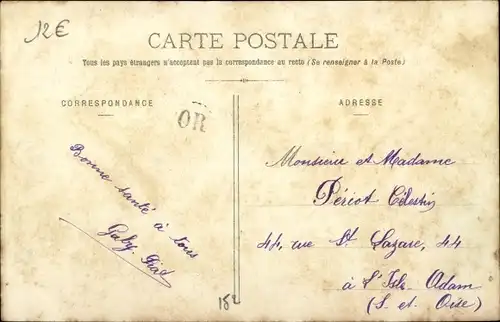 12€
CARTE POSTALE
Tous les pays étrangers n'acceptent pas la correspondance au recto (Se renseigner à la Poste)
CORRESPONDANCE
OR
Bonne santé à tous
Gaby
ADRESSE
Monsieur et Madame
Périot Célestin
44, rue St. Lazare, 44
à L'Isle-Adam
(S. et Oise)